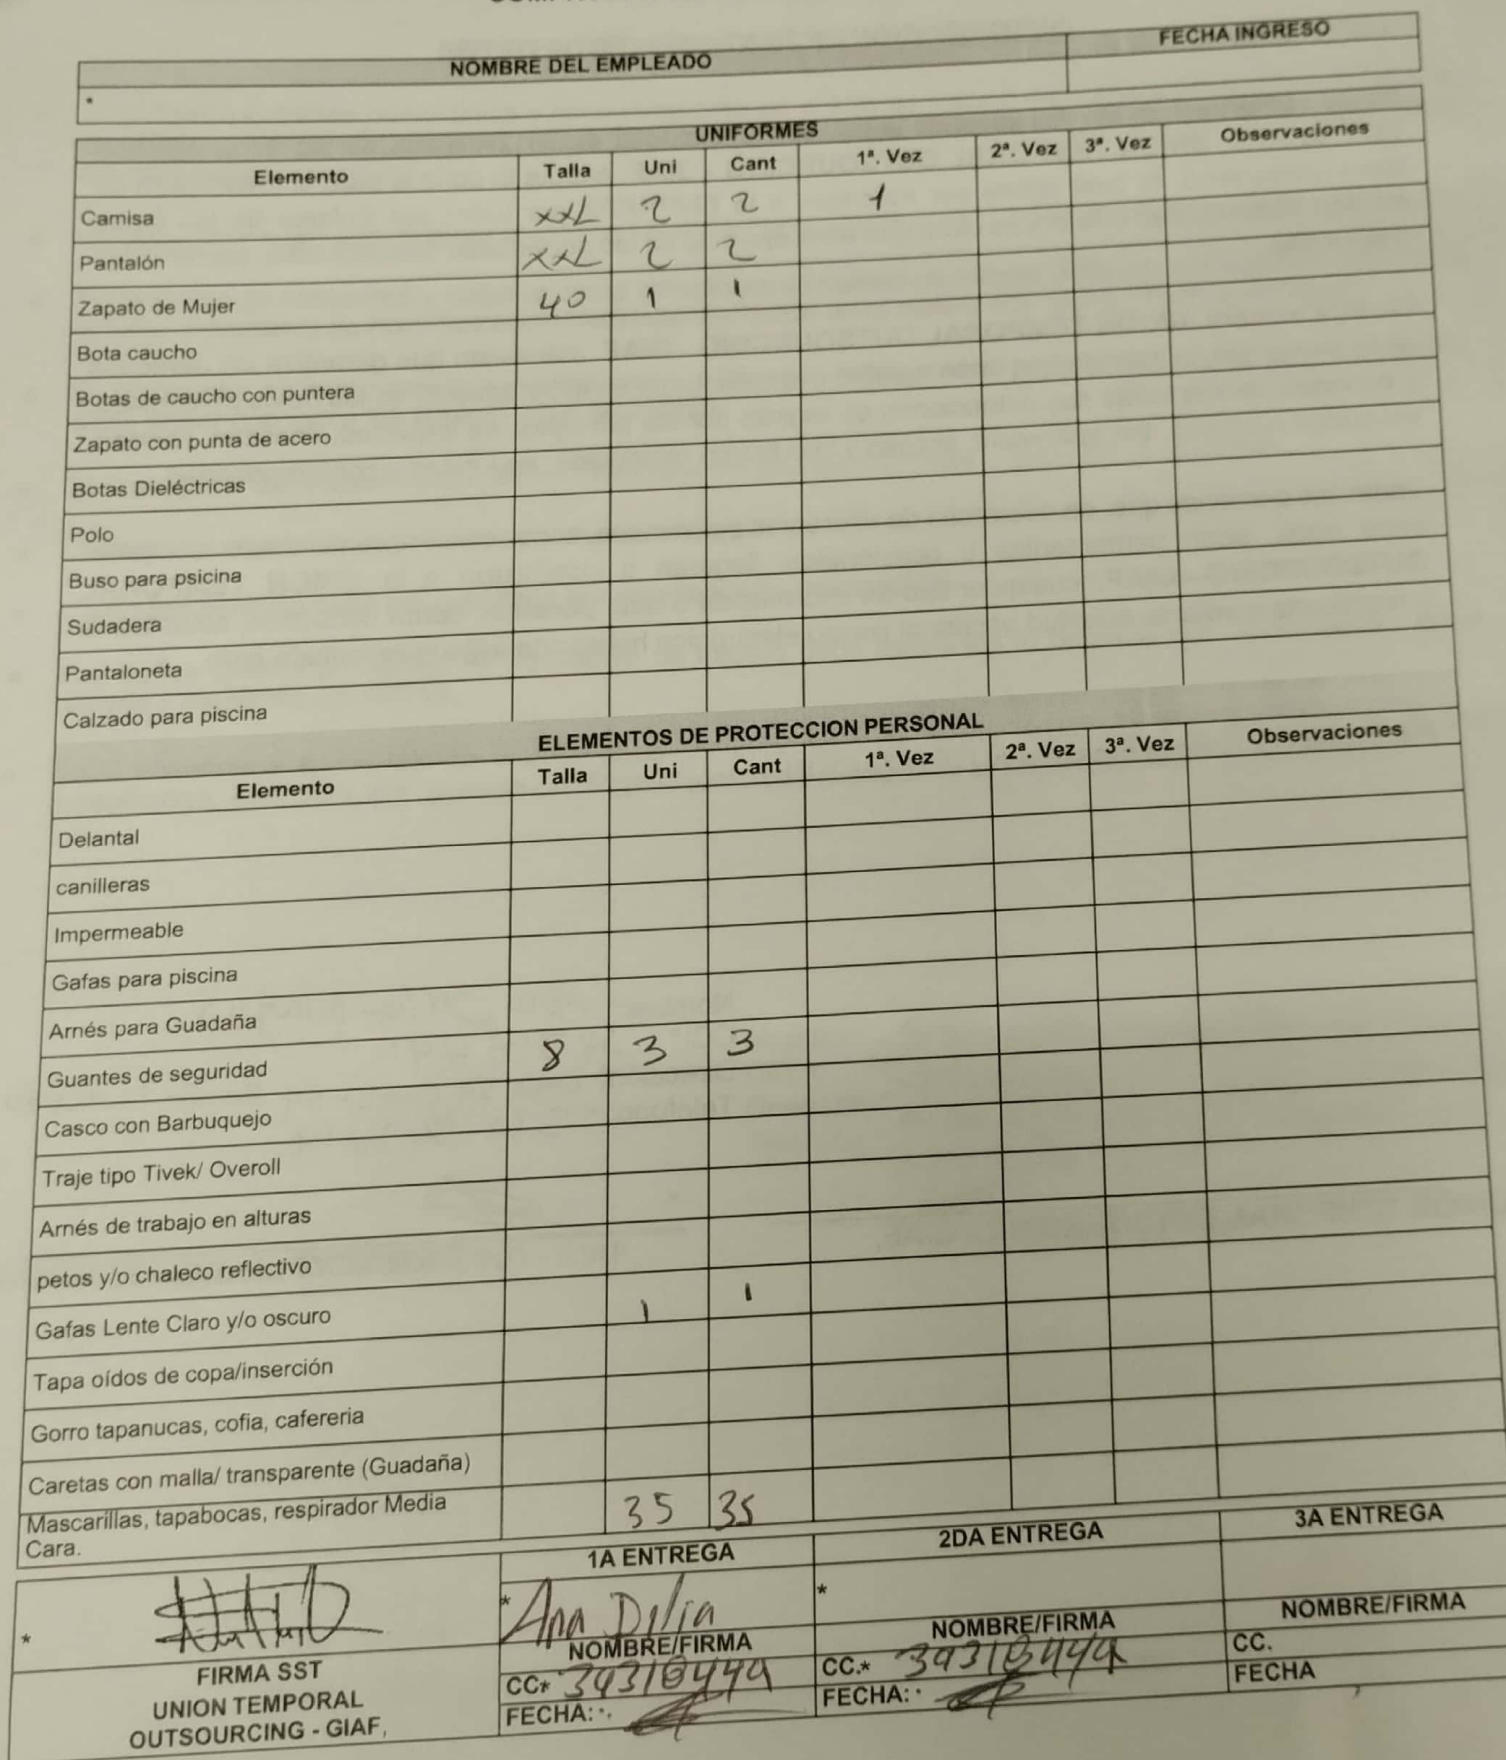 NOMBRE DEL EMPLEADO FECHA INGRESO
*
UNIFORMES
Elemento Talla Uni Cant 1ª. Vez 2ª. Vez 3ª. Vez Observaciones
Camisa XXL 2 2 1
Pantalón XXL 2 2
Zapato de Mujer 40 1 1
Bota caucho
Botas de caucho con puntera
Zapato con punta de acero
Botas Dieléctricas
Polo
Buso para psicina
Sudadera
Pantaloneta
Calzado para piscina
ELEMENTOS DE PROTECCION PERSONAL
Elemento Talla Uni Cant 1ª. Vez 2ª. Vez 3ª. Vez Observaciones
Delantal
canilleras
Impermeable
Gafas para piscina
Arnés para Guadaña
Guantes de seguridad 8 3 3
Casco con Barbuquejo
Traje tipo Tivek/ Overoll
Arnés de trabajo en alturas
petos y/o chaleco reflectivo
Gafas Lente Claro y/o oscuro 1 1
Tapa oídos de copa/inserción
Gorro tapanucas, cofia, cafereria
Caretas con malla/ transparente (Guadaña)
Mascarillas, tapabocas, respirador Media
Cara. 35 35
1A ENTREGA 2DA ENTREGA 3A ENTREGA
* * Ana Dilia *
NOMBRE/FIRMA NOMBRE/FIRMA NOMBRE/FIRMA
FIRMA SST CC* 39318449 CC.* 39318449 CC.
UNION TEMPORAL FECHA: FECHA: FECHA
OUTSOURCING - GIAF,